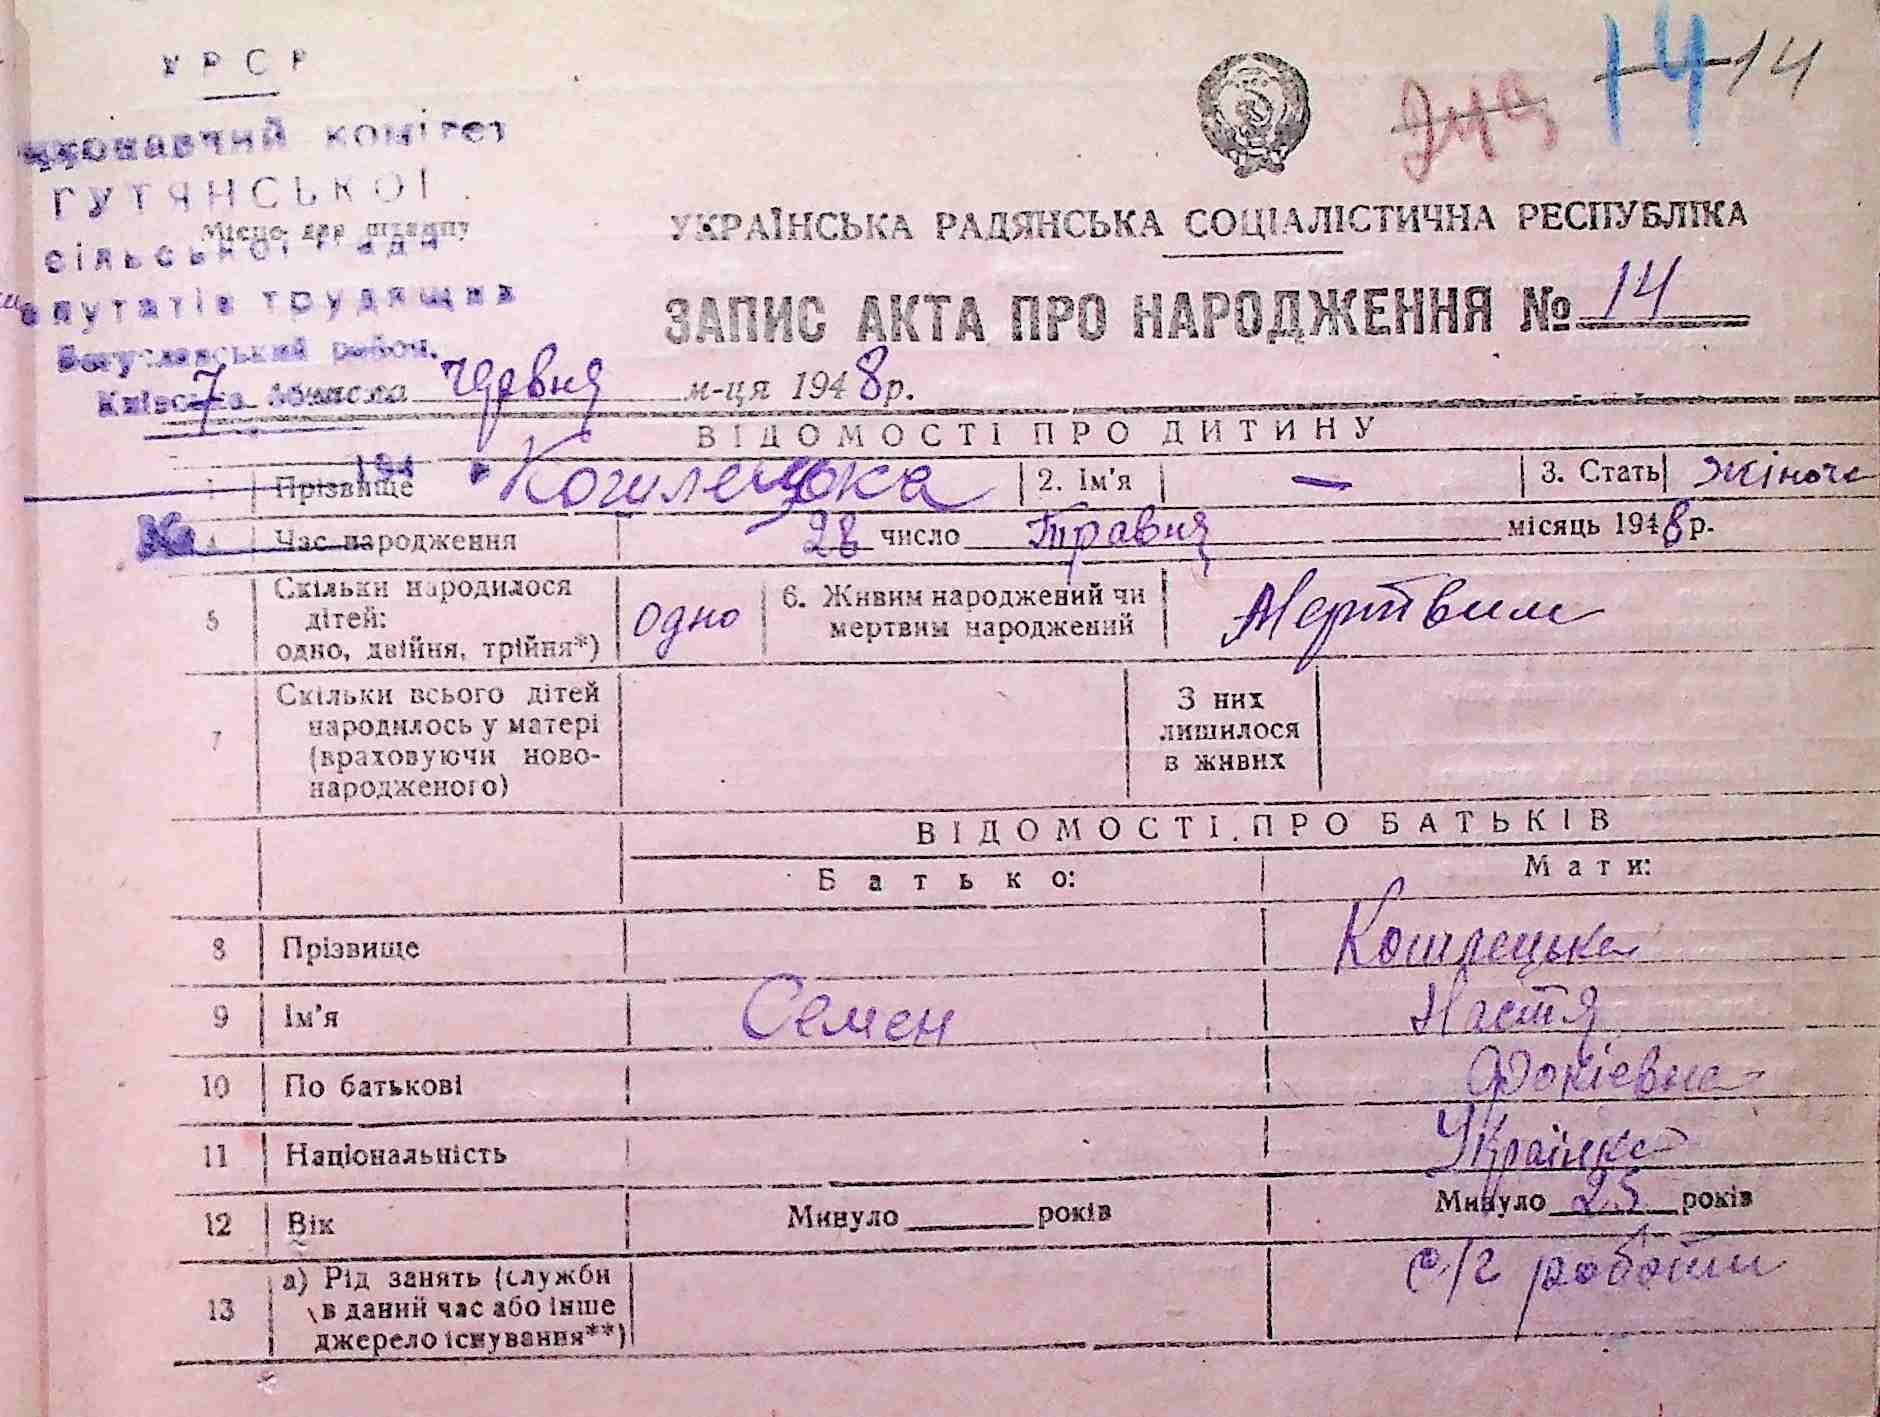 УРСР
виконавчий комітет
ГУТЯНСЬКОЇ
Місце для штампу
сільської ради
депутатів трудящих
Богуславський район.
Київська область
14 14
УКРАЇНСЬКА РАДЯНСЬКА СОЦІАЛІСТИЧНА РЕСПУБЛІКА
ЗАПИС АКТА ПРО НАРОДЖЕННЯ № 14
7 числа червня м-ця 1948 р.
ВІДОМОСТІ ПРО ДИТИНУ
194
1 Прізвище Кошлецька 2. Ім'я — 3. Стать жіноче
№
4 Час народження 28 число Травня місяць 1948 р.
5 Скільки народилося дітей: одно, двійня, трійня*) одно 6. Живим народжений чи мертвим народжений Мертвим
7 Скільки всього дітей народилось у матері (враховуючи ново-народженого) З них лишилося в живих
ВІДОМОСТІ ПРО БАТЬКІВ
Батько: Мати:
8 Прізвище Кошлецька
9 Ім'я Семен Настя
10 По батькові Фокієвна
11 Національність Українка
12 Вік Минуло ______ років Минуло 25 років
13 а) Рід занять (служби в даний час або інше джерело існування**) с/г роботи